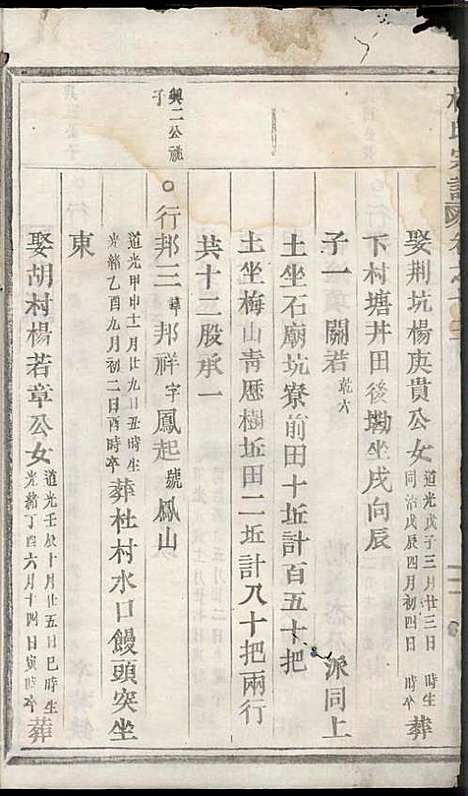 氏宗譜
娶荆坑楊庚貴公女 道光戊子三月廿三日 時生 同治戊辰四月初四日 時卒 葬
下村塘井田後坳坐戌向辰
子一 關若 乾六 派同上
土坐石廟坑寮前田十坵計百五十把
土坐梅山青歷樹坵田二坵計八十把兩行
共十二股承一
興二公祧子
○行邦三 諱 邦祥 字 鳳起 號 鳳山
道光甲申十二月廿九日丑時生 光緒乙酉九月初二日酉時卒 葬杜村水口饅頭突坐
東
娶胡村楊若章公女 道光壬辰十月廿五日巳時生 光緒丁酉六月十四日寅時卒 葬